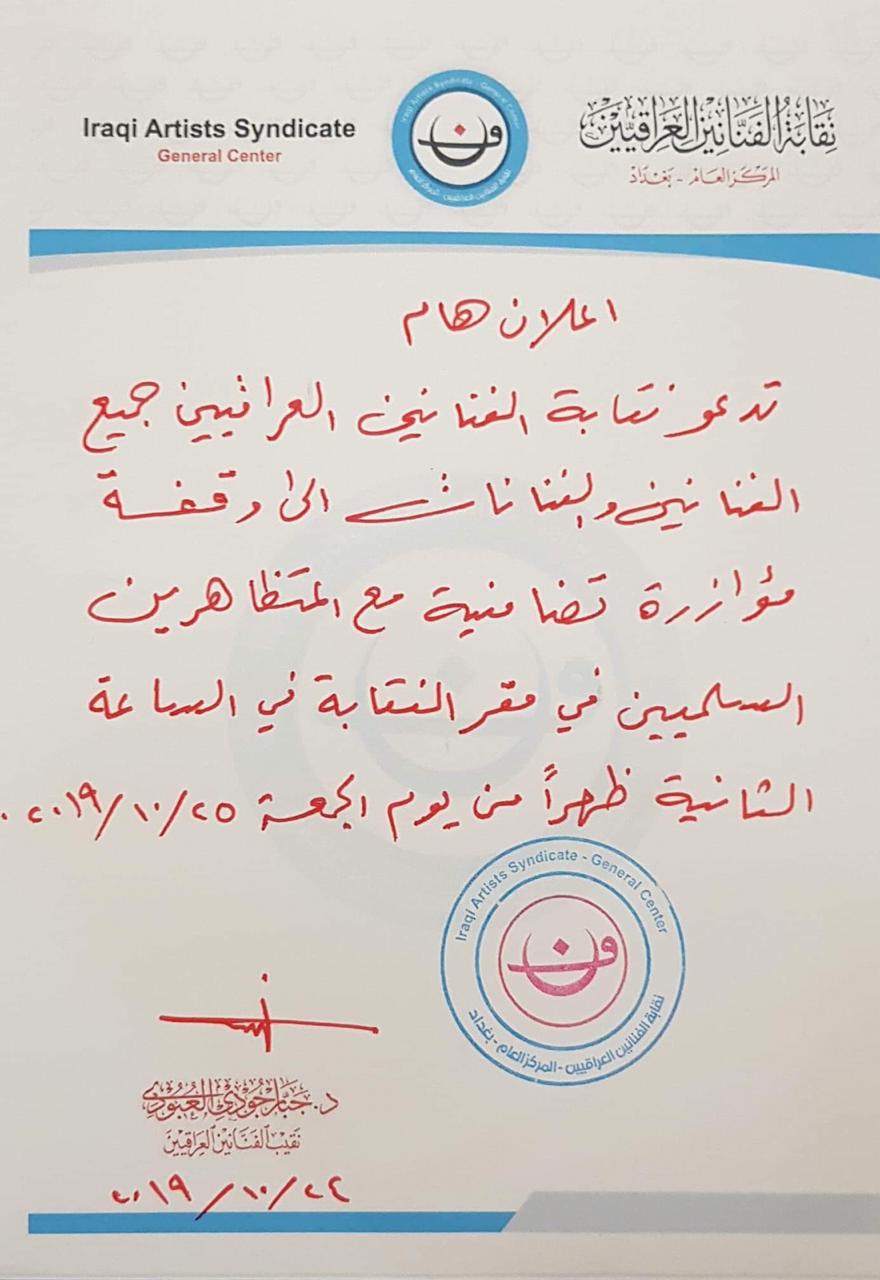 Iraqi Artists Syndicate
General Center
Iraqi Artists Syndicate - General Center
نقابة الفنانين العراقيين - المركز العام
نِقَابَةُ الفَنَّانِين العِرَاقِيِّين
المَركَز العَام - بَغدَاد
اعلان هام
تدعو نقابة الفنانين العراقيين جميع
الفنانين والفنانات الى وقفة
مؤازرة تضامنية مع المتظاهرين
السلميين في مقر النقابة في الساعة
الثانية ظهراً من يوم الجمعة ٢٠١٩/١٠/٢٥ .
Iraqi Artists Syndicate - General Center
نقابة الفنانين العراقيين - المركز العام - بغداد
د. جَبَّار جُودِي العُبُودِي
نَقِيب الفَنَّانِين العِرَاقِيِّين
٢٠١٩/١٠/٢٤